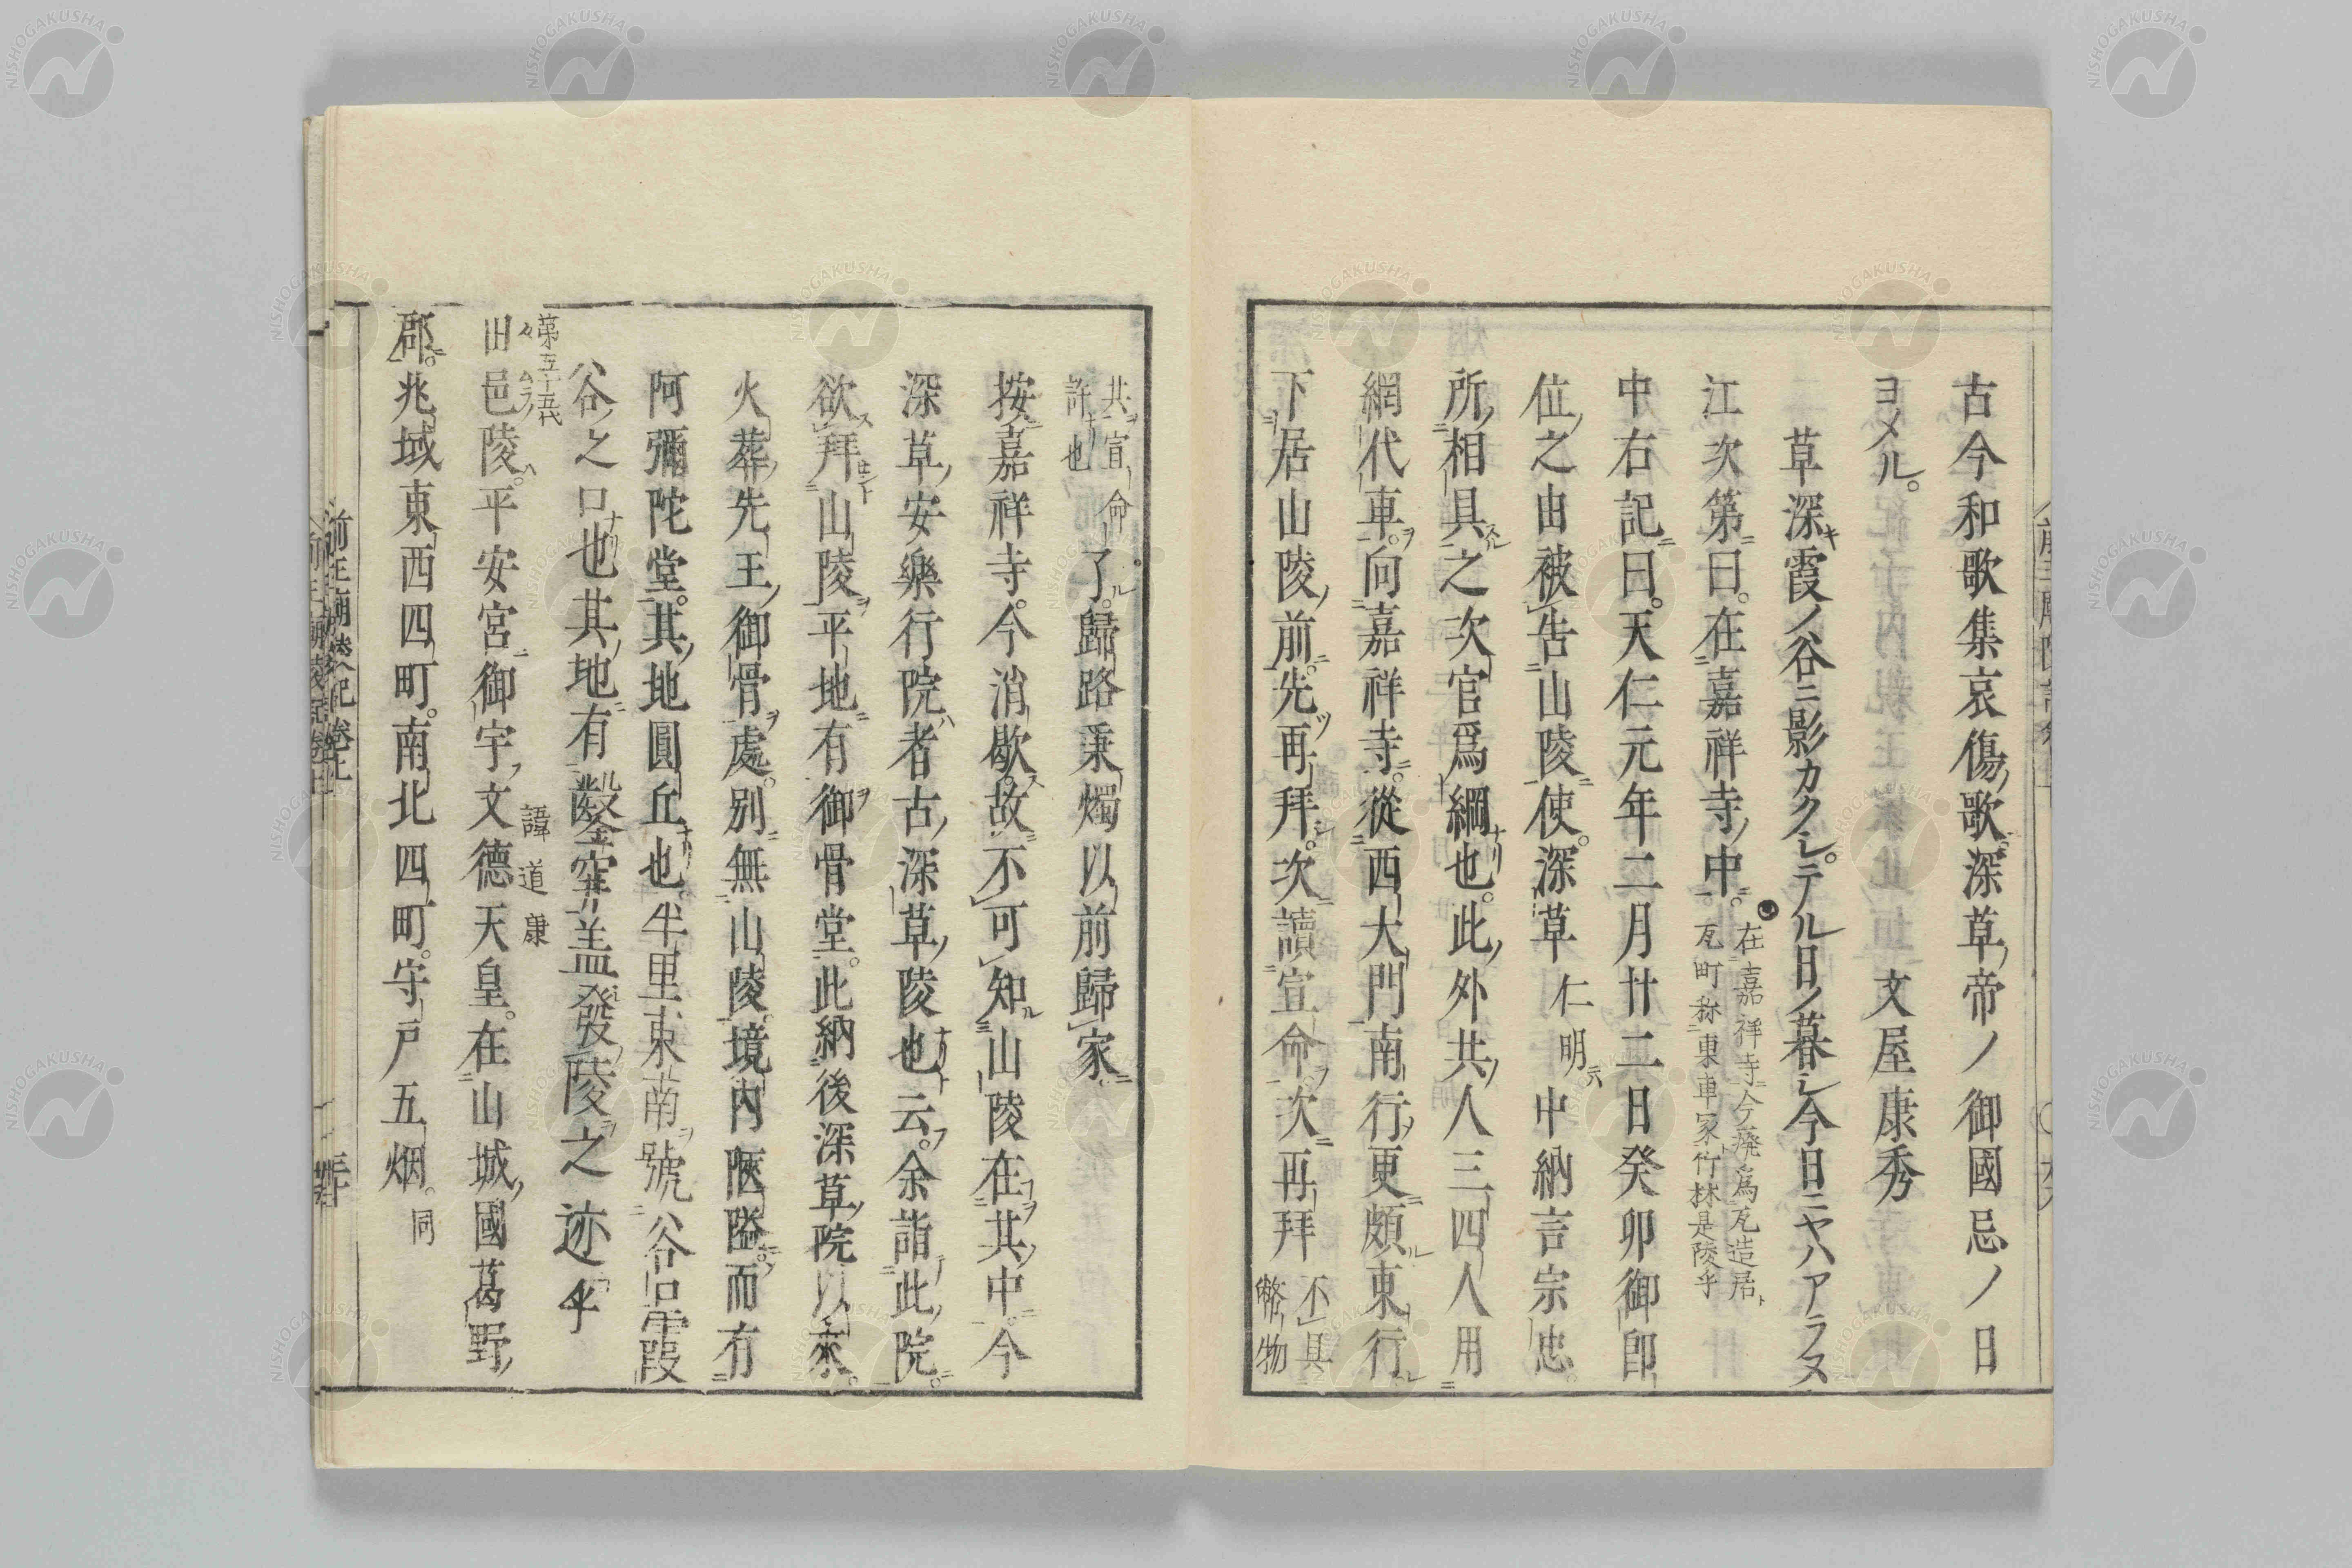 古今和歌集哀傷歌深草ノ帝ノ御國忌ノ日
ヨメル。文屋康秀
草深キ霞ノ谷ニ影カクシテル日ノ暮シ今日ニヤハアラヌ
江次第曰。在嘉祥寺中。在嘉祥寺今廢爲瓦造居瓦町称東車家竹林是陵乎
中右記曰。天仁元年二月廿二日癸卯御卽
位之由被告山陵使。深草仁明中納言宗忠。
所相具之次官爲綱也。此外共人三四人用
網代車。向嘉祥寺。從西大門南行更頗東行
下居山陵前。先再拜。次讀宣命次再拜不具幣物
共宣命許也了。歸路秉燭以前歸家
按嘉祥寺。今消歇。故不可知山陵在其中。今
深草安樂行院者古深草陵也云。余詣此院。
欲拜山陵平地有御骨堂。此納後深草院以來。
火葬先王御骨處。別無山陵境內陋隘。而有
阿彌陀堂。其地圓丘也。半里東南號谷口霞
谷之口也其地有鑿穿蓋發陵之迹乎
第五十五代
田邑陵。平安宮御宇文德天皇。諱道康在山城國葛野
郡。兆域東西四町。南北四町。守戶五烟。同
前王廟陵記卷上